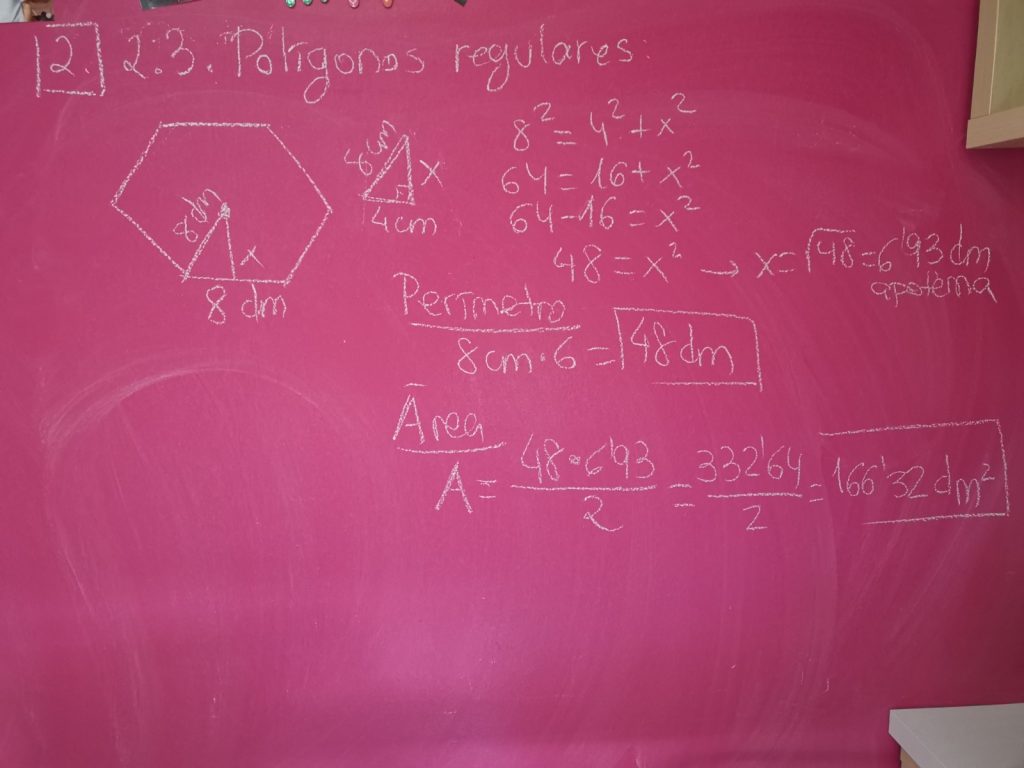 2. 2.3. Polígonos regulares.
8 dm
x
8 dm
8 cm
x
4 cm
8² = 4² + x²
64 = 16 + x²
64 - 16 = x²
48 = x² → x = √48 = 6'93 dm
apotema
Perímetro
8 cm · 6 = 48 dm
Área
A = 48 · 6'93 / 2 = 332'64 / 2 = 166'32 dm²